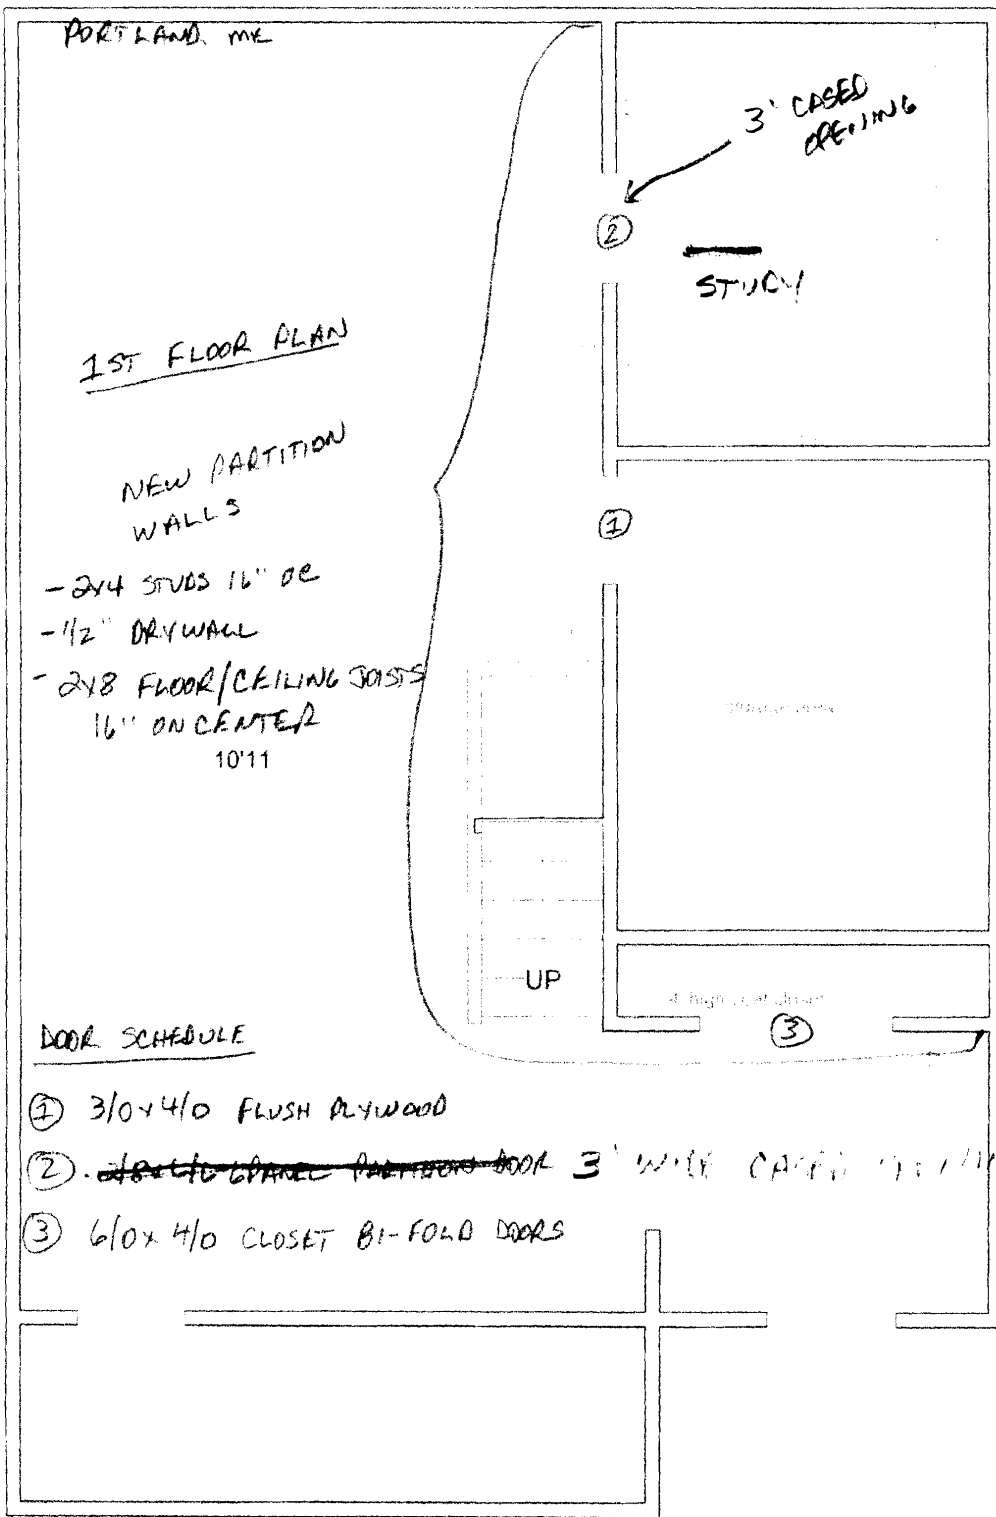 PORTLAND. ME
3' CASED
OPENING
2
STUDY
1ST FLOOR PLAN
NEW PARTITION
WALLS
1
- 2x4 STUDS 16" OC
- 1/2" DRYWALL
- 2x8 FLOOR/CEILING JOISTS
16" ON CENTER
10'11
UP
4' high coat closet
3
DOOR SCHEDULE
1 3/0x4/0 FLUSH PLYWOOD
2 . DOOR 3' WIDE CASED
3 6/0x 4/0 CLOSET BI-FOLD DOORS